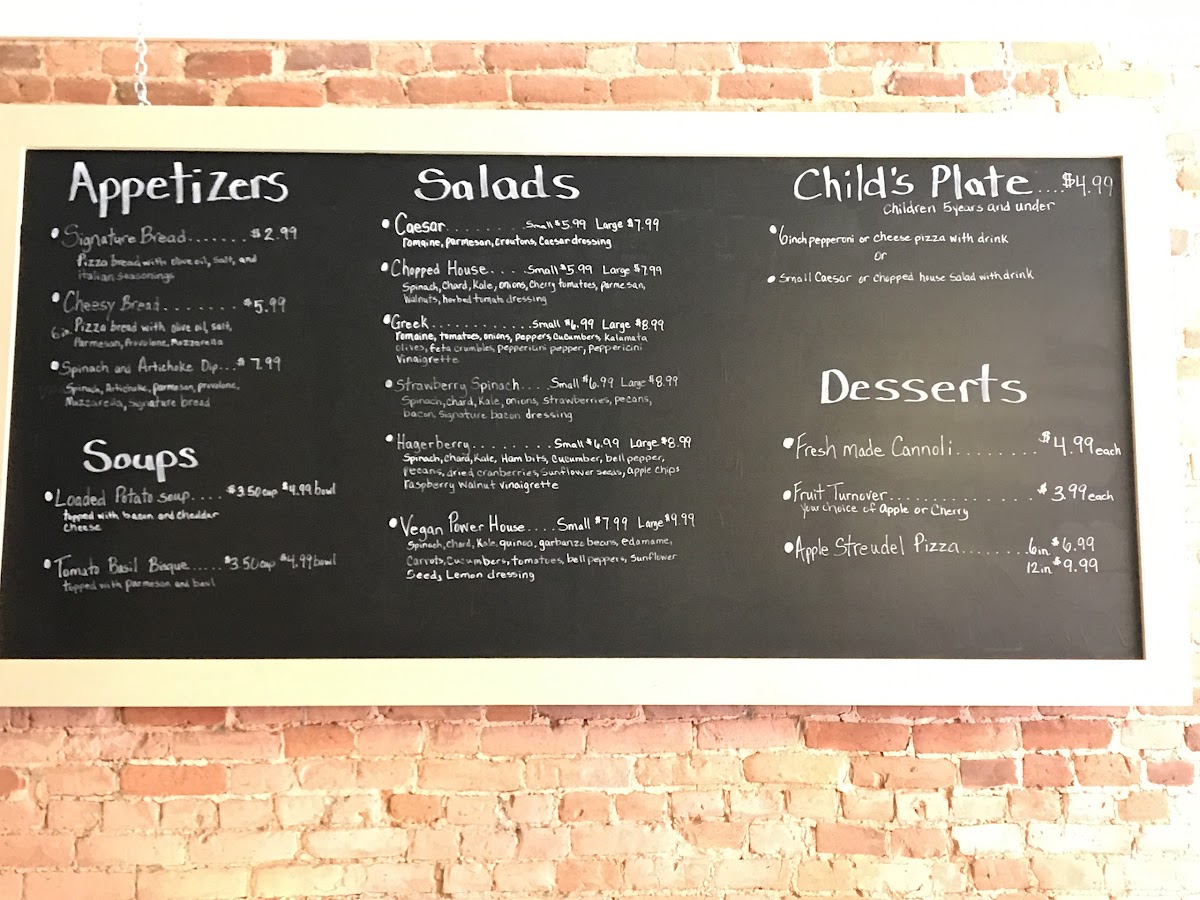 Appetizers
Signature Bread.......$2.99
Pizza bread with olive oil, salt, and
italian seasonings
Cheesy Bread........$5.99
6in Pizza bread with olive oil, salt,
Parmesan, Provolone, Mozzarella
Spinach and Artichoke Dip...$7.99
Spinach, Artichoke, parmesan, provolone,
Muzzarella, signature bread
Soups
Loaded Potato soup....$3.50cup $4.99 bowl
topped with bacon and cheddar
cheese
Tomato Basil Bisque....$3.50cup $4.99 bowl
topped with parmesan and basil
Salads
Caesar........Small $5.99 Large $7.99
romaine, parmesan, croutons, Caesar dressing
Chopped House....Small $5.99 Large $7.99
Spinach, Chard, Kale, onions, Cherry tomatoes, parmesan,
Walnuts, herbed tomato dressing
Greek............Small $6.99 Large $8.99
romaine, tomatoes, onions, peppers, cucumbers, Kalamata
olives, feta crumbles, pepperícini pepper, peppericini
vinaigrette
Strawberry Spinach....Small $6.99 Large $8.99
Spinach, chard, Kale, onions, strawberries, pecans,
bacon, signature bacon dressing
Hagerberry........Small $6.99 Large $8.99
Spinach, chard, Kale, Ham bits, Cucumber, bell pepper,
pecans, dried cranberries, Sunflower seeds, apple chips
raspberry walnut vinaigrette
Vegan Power House....Small $7.99 Large $9.99
Spinach, chard, Kale, quinoa, garbanzo beans, edamame,
Carrots, Cucumbers, tomatoes, bell peppers, Sunflower
Seeds, Lemon dressing
Child's Plate....$4.99
Children 5years and under
6inch pepperoni or cheese pizza with drink
or
Small Caesar or chopped house Salad with drink
Desserts
Fresh made Cannoli.........$4.99 each
Fruit Turnover...............$3.99 each
your choice of Apple or Cherry
Apple Streudel Pizza........6in $6.99
12in $9.99